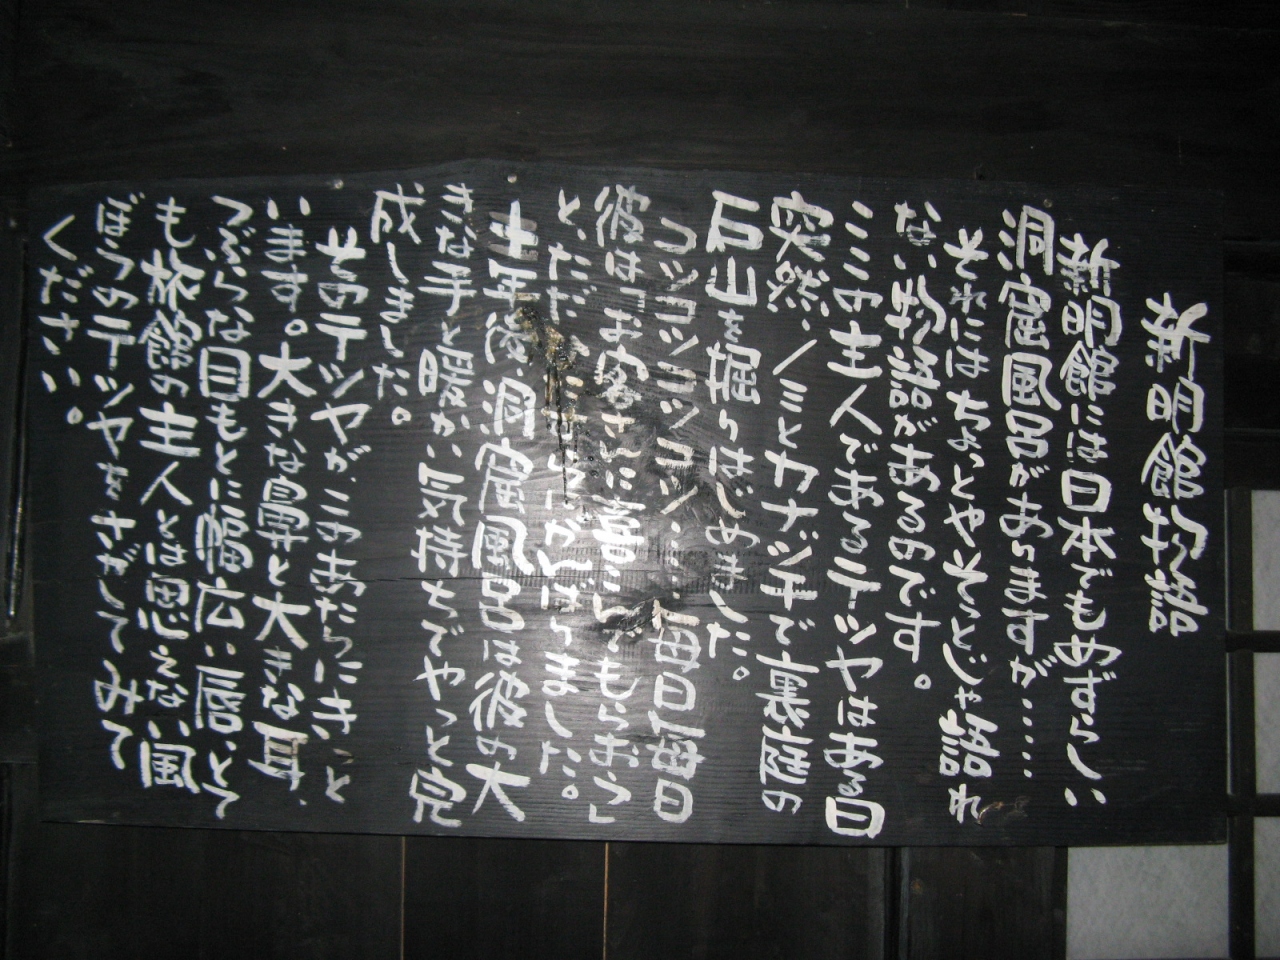 新明館物語
新明館には日本でもめずらしい
洞窟風呂がありますが……
それにはちょっとやそっとじゃ語れ
ない物語があるのです。
ここの主人であるテツヤはある日
突然、ノミとカナヅチで裏庭の
石山を掘りはじめました。
コツコツコツコツ……毎日毎日
彼は「お客さんに喜んでもらおう」
と、ただ
年後、洞窟風呂は彼の大
きな手と暖かい気持ちでやっと完
成しました。
そのテツヤが、このあたりにきっと
います。大きな鼻と大きな耳、
つぶらな目もとに幅広い唇、とて
も旅館の主人とは思えない風
ぼうのテツヤをさがしてみて
ください。